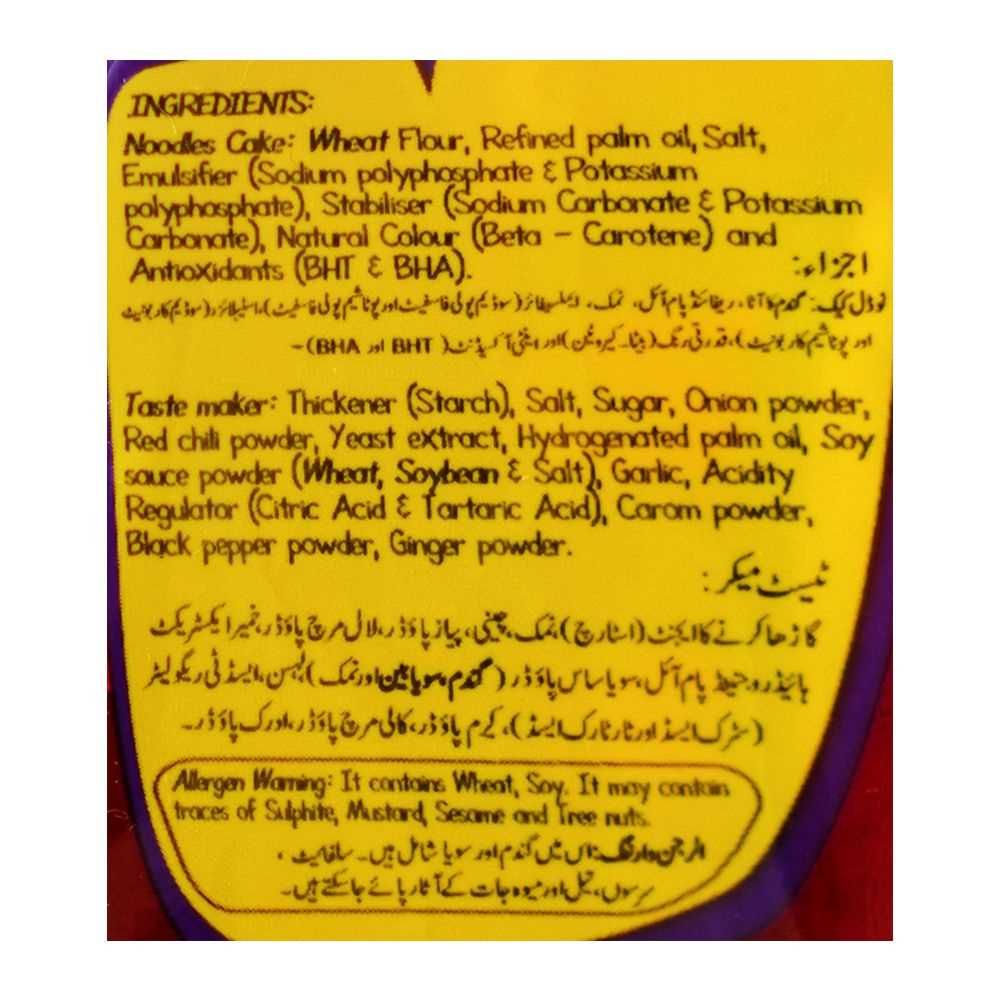 INGREDIENTS:
Noodles Cake: Wheat Flour, Refined palm oil, Salt,
Emulsifier (Sodium polyphosphate & Potassium
polyphosphate), Stabiliser (Sodium Carbonate & Potassium
Carbonate), Natural Colour (Beta - Carotene) and
Antioxidants (BHT & BHA).
اجزاء:
نوڈل کیک: گندم کا آٹا، ریفائنڈ پام آئل، نمک، ایملسیفائر (سوڈیم پولی فاسفیٹ اور پوٹاشیم پولی فاسفیٹ)، اسٹیبلائزر (سوڈیم کاربونیٹ
اور پوٹاشیم کاربونیٹ)، قدرتی رنگ (بیٹا۔ کیروٹین) اور اینٹی آکسیڈنٹ (BHT اور BHA)۔
Taste maker: Thickener (Starch), Salt, Sugar, Onion powder,
Red chili powder, Yeast extract, Hydrogenated palm oil, Soy
sauce powder (Wheat, Soybean & Salt), Garlic, Acidity
Regulator (Citric Acid & Tartaric Acid), Carom powder,
Black pepper powder, Ginger powder.
ٹیسٹ میکر:
گاڑھا کرنے کا ایجنٹ (اسٹارچ)، نمک، چینی، پیاز پاؤڈر، لال مرچ پاؤڈر، خمیر ایکسٹریکٹ
ہائیڈروجنیٹڈ پام آئل، سویا ساس پاؤڈر (گندم، سویابین اور نمک)، لہسن، ایسڈٹی ریگولیٹر
(سٹرک ایسڈ اور ٹارٹارک ایسڈ)، کیرم پاؤڈر، کالی مرچ پاؤڈر، ادرک پاؤڈر۔
Allergen Warning: It contains Wheat, Soy. It may contain
traces of Sulphite, Mustard, Sesame and Tree nuts.
الرجن وارننگ: اس میں گندم اور سویا شامل ہیں۔ سلفائیٹ،
سرسوں، تِل اور میوہ جات کے آثار پائے جا سکتے ہیں۔